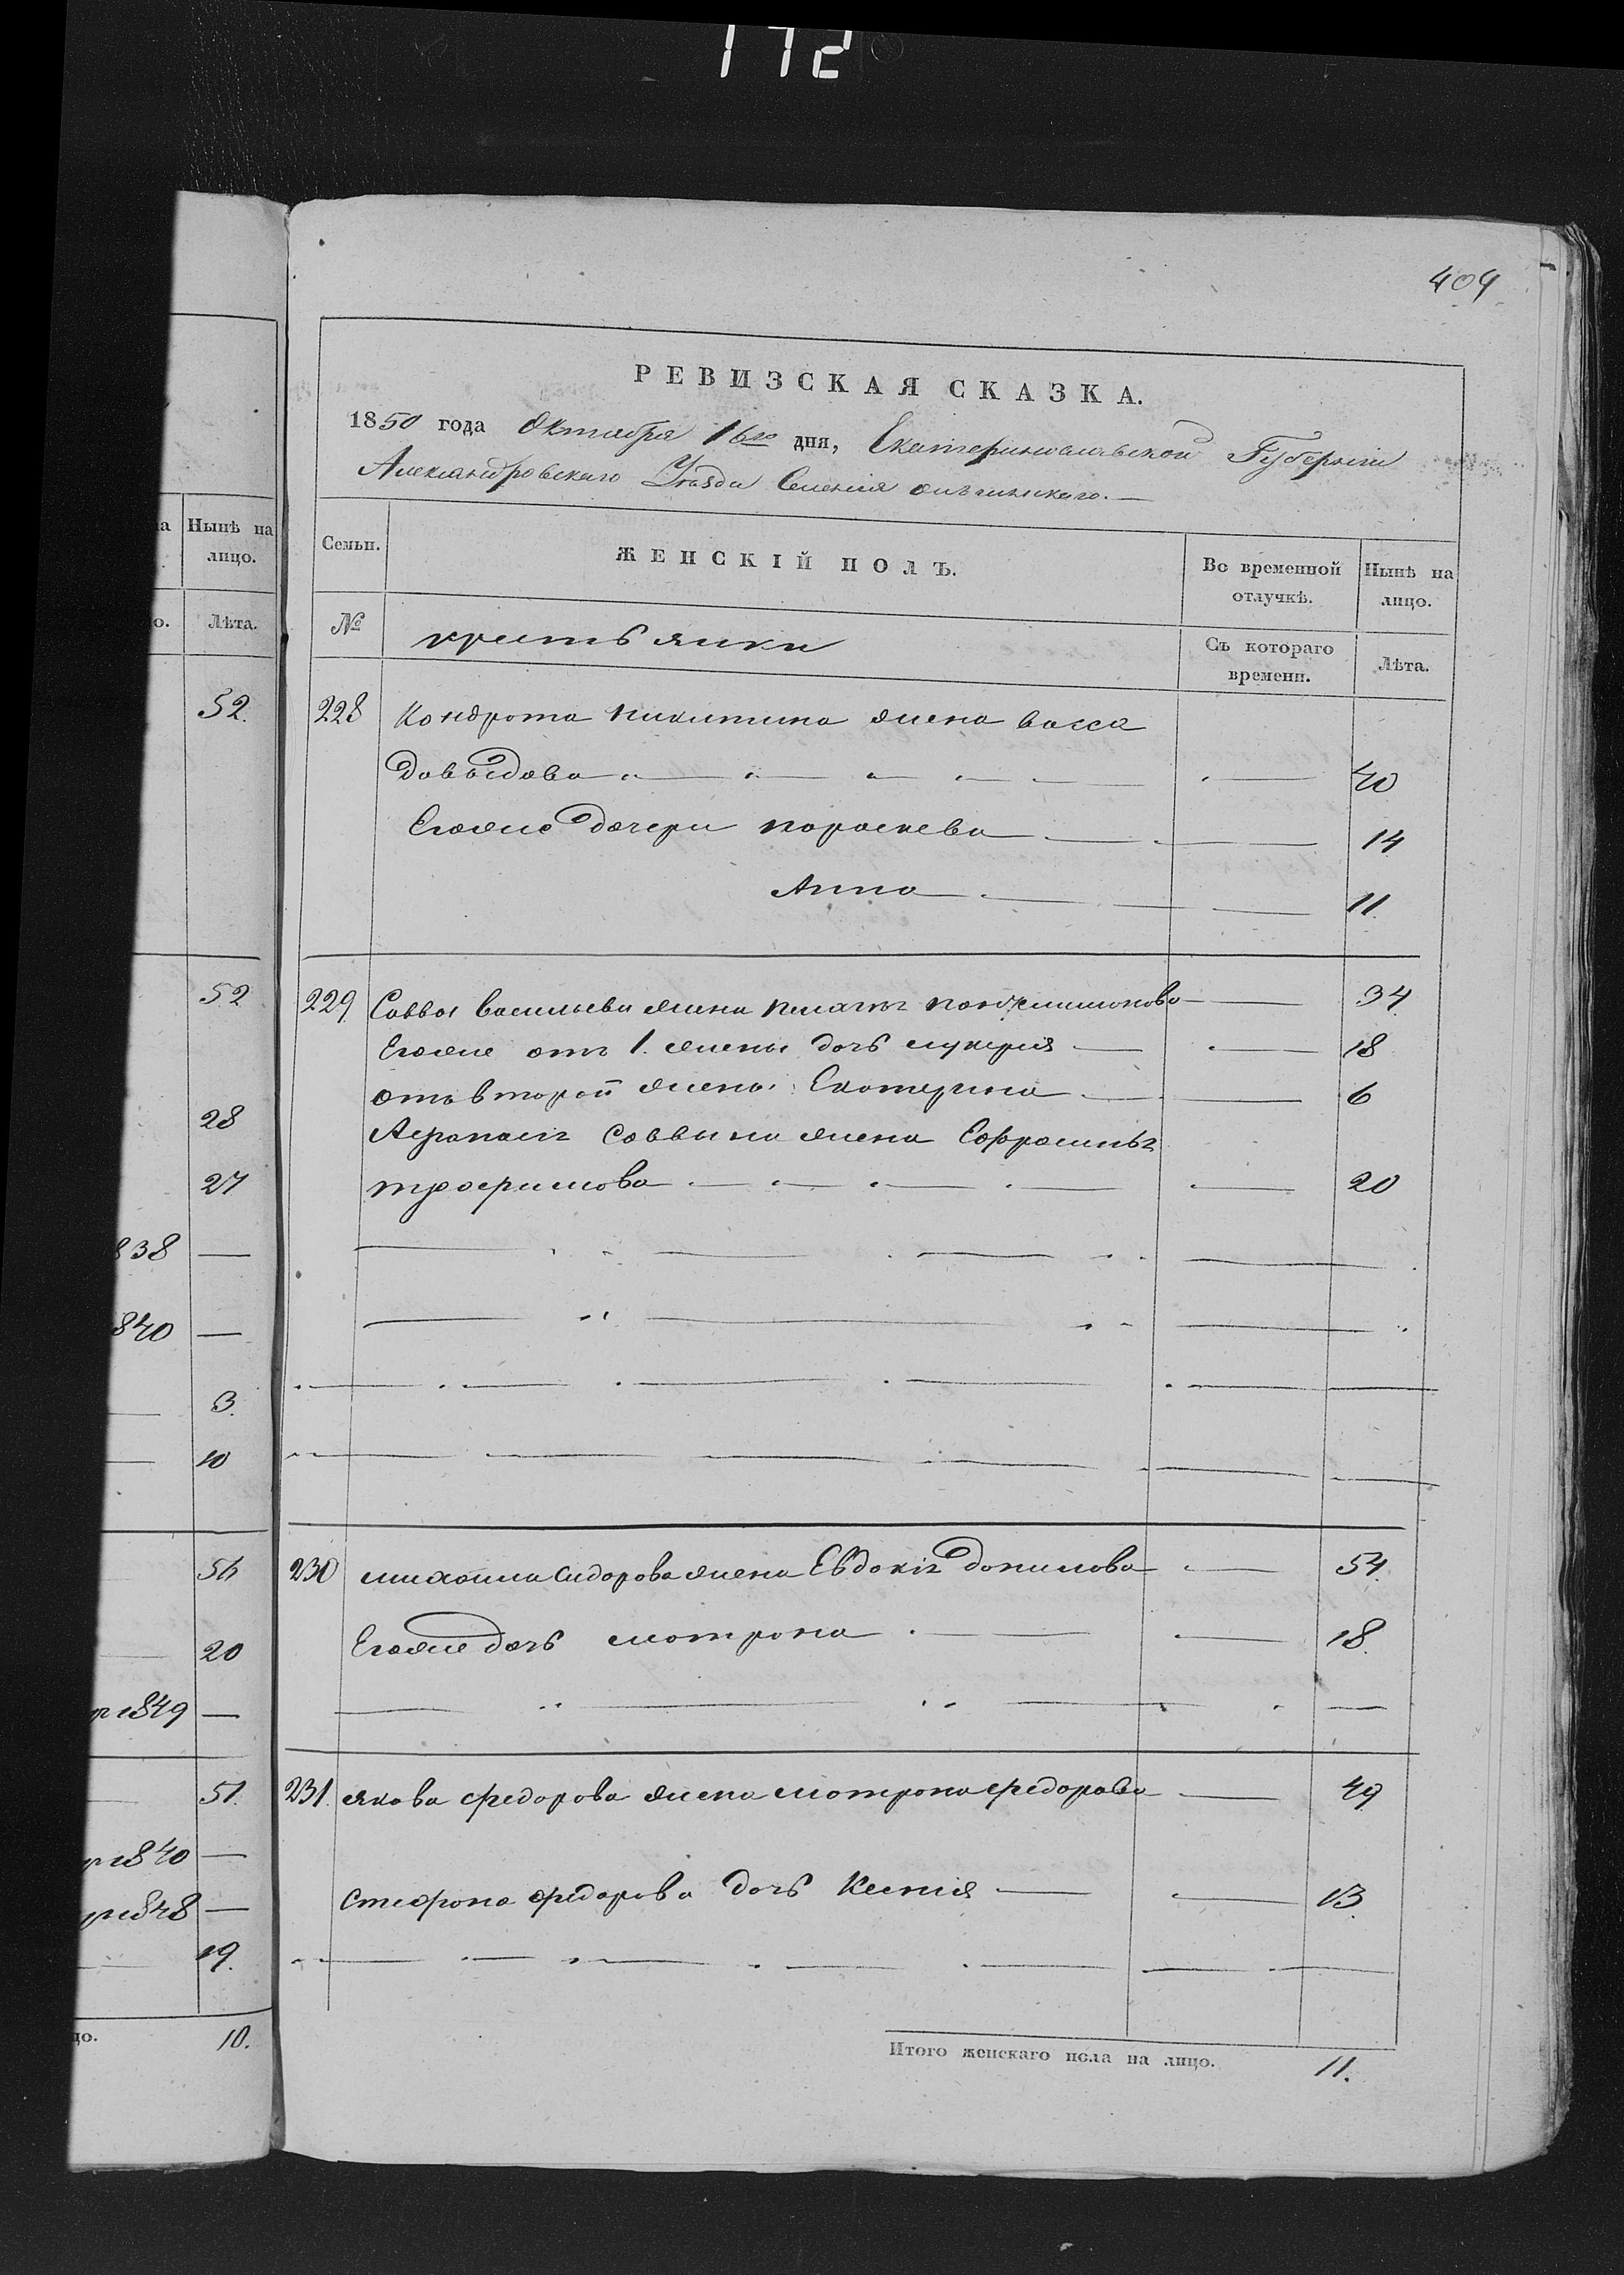 172
409
РЕВИЗСКАЯ СКАЗКА.
1850 года Октября 16го дня, Екатеринославской Губернии
Александровскаго Уезда Селения
на Нынѣ на лицо.
о. Лѣта.
Семьи.
ЖЕНСКІЙ ПОЛЪ.
Во временной отлучкѣ.
Нынѣ на лицо.
№
крестьянки
Съ котораго времени.
Лѣта.
52.
228 Кондрата Никитина жена васса
Давыдова 40
Егоже дочери параскева 14
Анна 11.
52
229 Саввы Васильева жена пелагея 34.
Егоже отъ 1. жены дочь лукерия 18
отъ второй жены Екатерина 6
28
Саввина жена Ефросинья
27
трофимова 20
838 —
840 —
3.
10
56
230 михаила сидорова жена Евдокія данилова 54.
20
Егоже дочь матрона 18.
1849 —
51.
231. якова федорова жена матрона федорова 49
1840 —
стефана федорова дочь Ксения 13.
1848 —
19.
цо. 10.
Итого женскаго пола на лицо. 11.